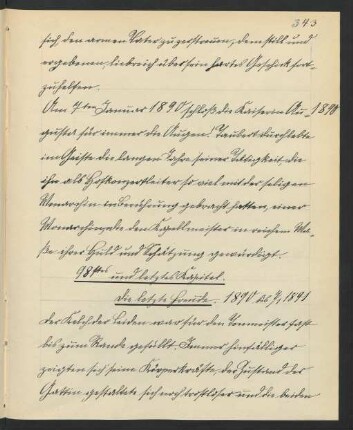 343
sich, den armen Vater zu zerstreuen, dem still und
ergebenen, liebreich über sein hartes Geschick fort-
zuhelfen.
Am 7ten Januar 1890 schloß die Kaiserin Au- 1890
gusta für immer die Augen! Taubert durchlebte
im Geiste die langen Jahre seiner Tätigkeit, die
ihn als Hofkonzertleiter so viel mit der seligen
Monarchin in Berührung gebracht hatten, einer
Monarchin, die den Kapellmeister in reichem Ma-
ße ihrer Huld und Schätzung gewürdigt.
98stes und letztes Kapitel.
Die letzte Freude. 1890 bis 1891
Der Kelch der Leiden war für den Tonmeister fast
bis zum Rande gefüllt. Immer hinfälliger
zeigten sich seine Körperkräfte, der Zustand des
Gatten gestaltete sich noch trostloser und die beiden